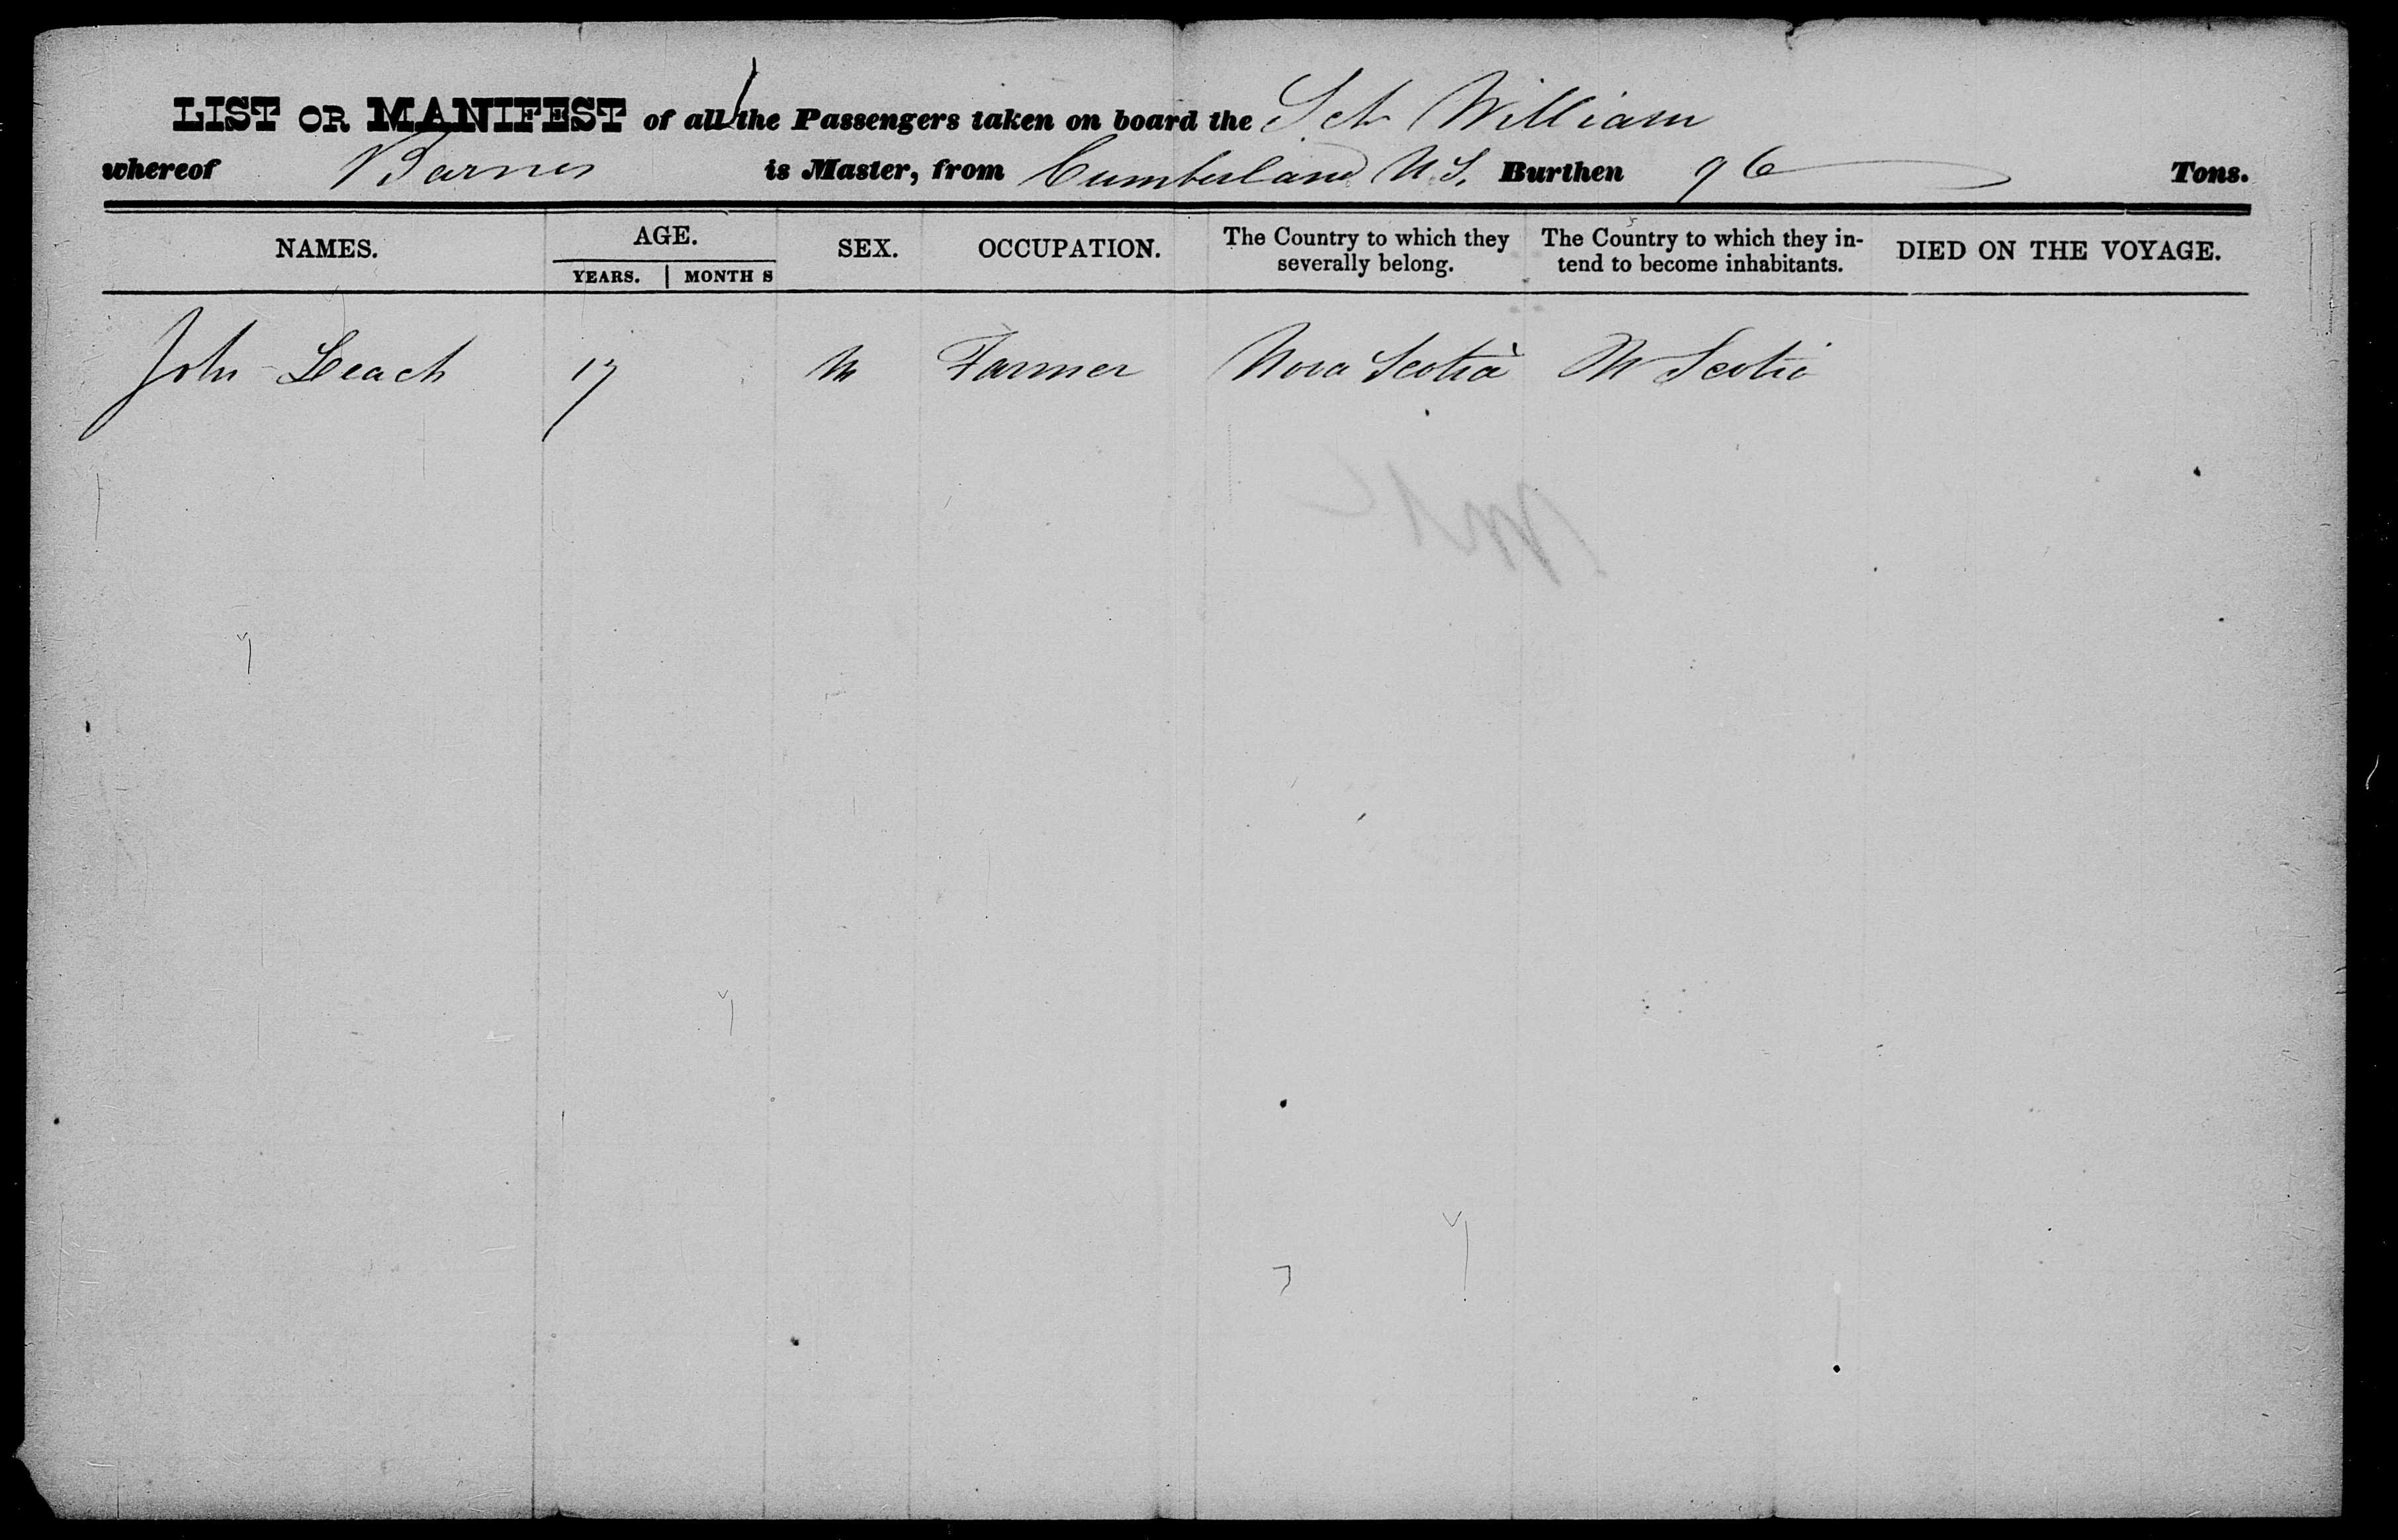 LIST OR MANIFEST of all the Passengers taken on board the Sch William
whereof Barnes is Master, from Cumberland N.S. Burthen 96 Tons.
NAMES. AGE. SEX. OCCUPATION. The Country to which they severally belong. The Country to which they in-tend to become inhabitants. DIED ON THE VOYAGE.
YEARS. MONTHS
John Leach 17 M Farmer Nova Scotia N Scotia